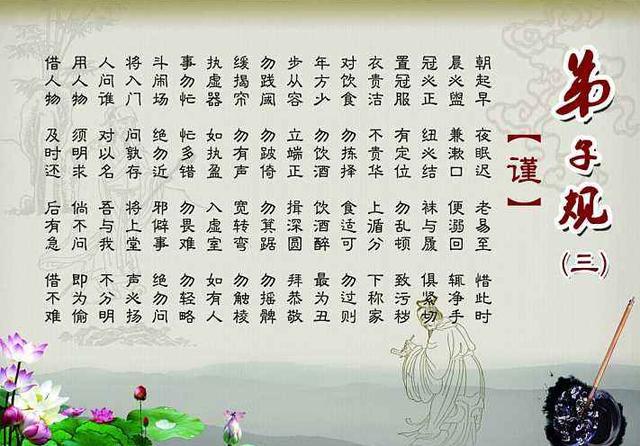 弟子规
(三)
【谨】
朝起早 夜眠迟 老易至 惜此时
晨必盥 兼漱口 便溺回 辄净手
冠必正 纽必结 袜与履 俱紧切
置冠服 有定位 勿乱顿 致污秽
衣贵洁 不贵华 上循分 下称家
对饮食 勿拣择 食适可 勿过则
年方少 勿饮酒 饮酒醉 最为丑
步从容 立端正 揖深圆 拜恭敬
勿践阈 勿跛倚 勿箕踞 勿摇髀
缓揭帘 勿有声 宽转弯 勿触棱
执虚器 如执盈 入虚室 如有人
事勿忙 忙多错 勿畏难 勿轻略
斗闹场 绝勿近 邪僻事 绝勿问
将入门 问孰存 将上堂 声必扬
人问谁 对以名 吾与我 不分明
用人物 须明求 倘不问 即为偷
借人物 及时还 后有急 借不难